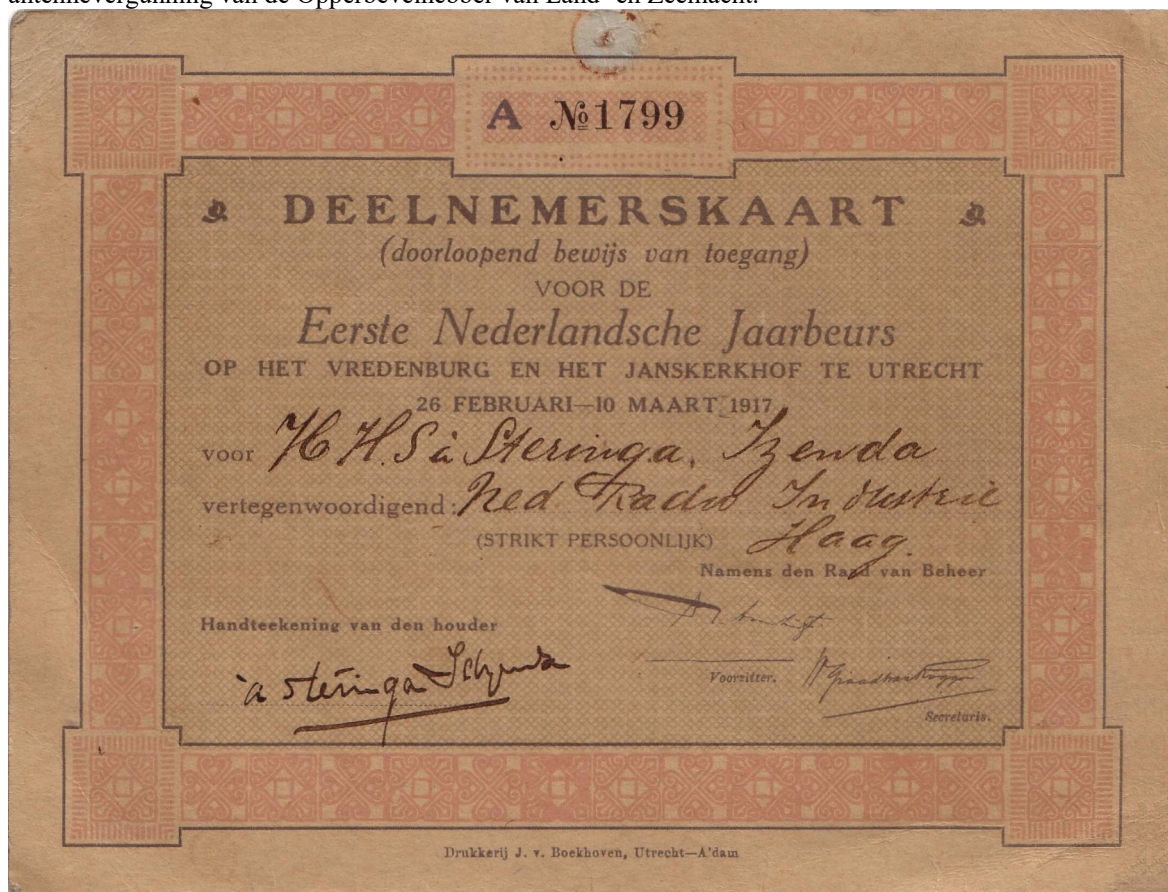 antennevergunning van de Opperbevelhebber van Land- en Zeemacht.
A № 1799
DEELNEMERSKAART
(doorloopend bewijs van toegang)
VOOR DE
Eerste Nederlandsche Jaarbeurs
OP HET VREDENBURG EN HET JANSKERKHOF TE UTRECHT
26 FEBRUARI—10 MAART 1917
voor H.H.S à Steringa, Izenda
vertegenwoordigend: Ned Radio Industrie
(STRIKT PERSOONLIJK) Haag.
Namens den Raad van Beheer
Handteekening van den houder
à Steringa Idzerda
Voorzitter.
Secretaris.
Drukkerij J. v. Boekhoven, Utrecht—A'dam